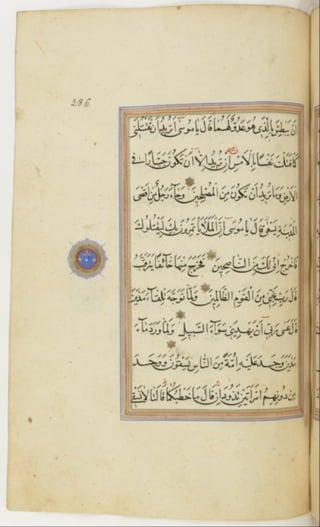 286
ان يبطش بالذى هو عدو لهما قال يا موسى اتريد ان تقتلنى
كما قتلت نفسا بالامس ان تريد الا ان تكون جبارا فى
الارض وما تريد ان تكون من المصلحين وجاء رجل من اقصى
المدينة يسعى قال يا موسى ان الملأ يأتمرون بك ليقتلوك
فاخرج انى لك من الناصحين فخرج منها خائفا يترقب
قال رب نجنى من القوم الظالمين ولما توجه تلقاء مدين
قال عسى ربى ان يهدينى سواء السبيل ولما ورد ماء
مدين وجد عليه امة من الناس يسقون ووجد
من دونهم امرأتين تذودان قال ما خطبكما قالتا لا نسقى